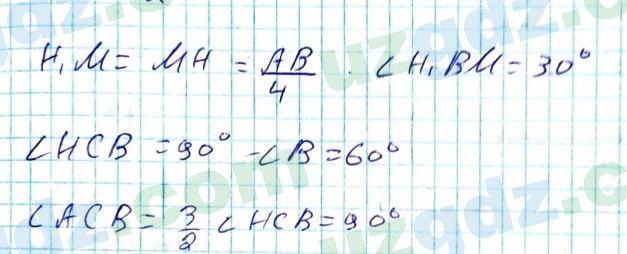 H₁M = MH = AB/4 . ∠H₁BM = 30°
∠HCB = 90° - ∠B = 60°
∠ACB = 3/2 ∠HCB = 90°